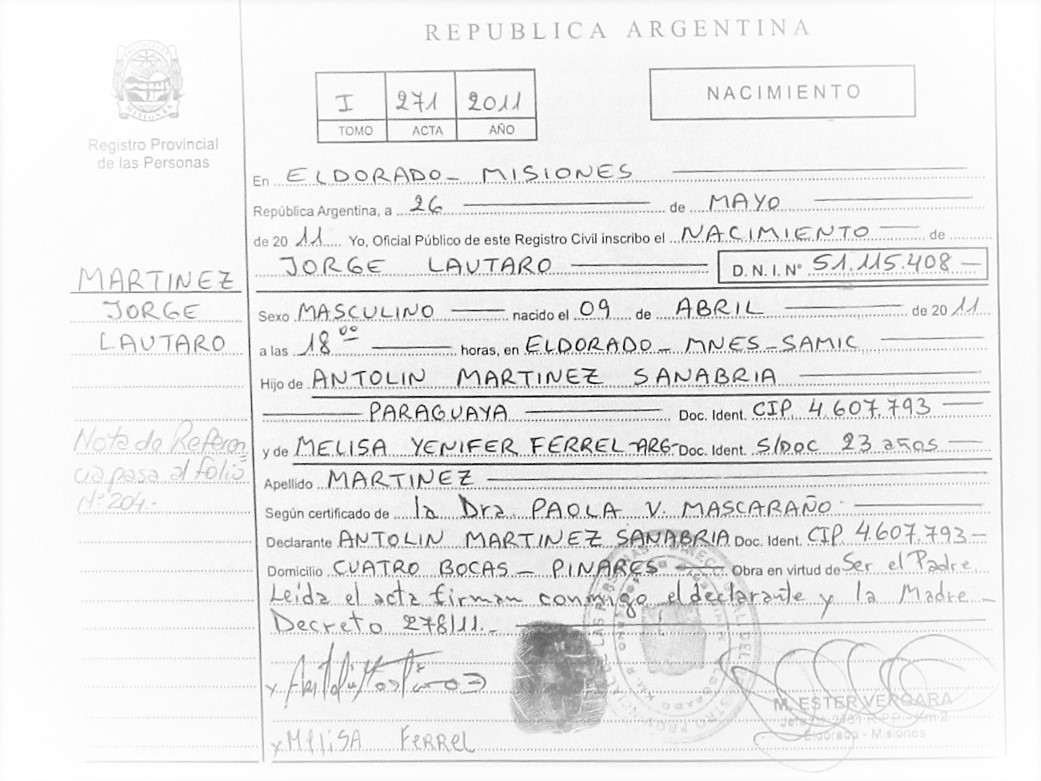 REPUBLICA ARGENTINA
I 271 2011
TOMO ACTA AÑO
NACIMIENTO
Registro Provincial
de las Personas
En ELDORADO - MISIONES
República Argentina, a 26 de MAYO
de 20 11 Yo, Oficial Público de este Registro Civil inscribo el NACIMIENTO de
JORGE LAUTARO D.N.I. N° 51.115.408 -
MARTINEZ
JORGE
LAUTARO
Sexo MASCULINO nacido el 09 de ABRIL de 20 11
a las 18 00 horas, en ELDORADO - MNES - SAMIC
Hijo de ANTOLIN MARTINEZ SANABRIA
PARAGUAYA Doc. Ident. CIP 4.607.793
Nota de Referen
cia pasa al folio
N° 204.-
y de MELISA YENIFER FERREL - ARG - Doc. Ident. S/DOC 23 años
Apellido MARTINEZ
Según certificado de la Dra PAOLA V. MASCARAÑO
Declarante ANTOLIN MARTINEZ SANABRIA Doc. Ident. CIP. 4.607.793 -
Domicilio CUATRO BOCAS - PINARES Obra en virtud de Ser el Padre
Leída el acta firman conmigo el declarante y la Madre -
Decreto 278/11.-
x
M. ESTER VERGARA
Eldorado - Misiones
x MEliSA FERREL